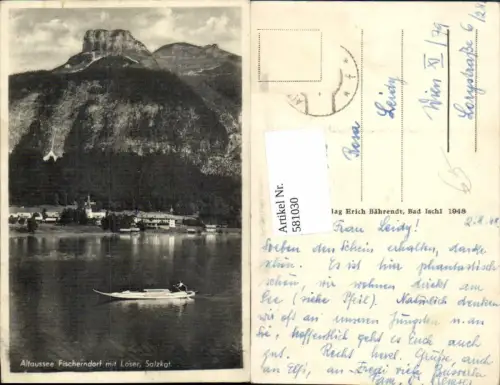 Altaussee Fischerndorf mit Loser, Salzkgt.
Artikel Nr.
581030
Rosa
Leidy
Wien XI/79
Lorystraße 6/28
65
lag Erich Bährendt, Bad Ischl 1948
Frau Leidy!
Soeben den Schein erhalten, danke
schön. Es ist hier phantastisch
schön, wir wohnen direkt am
See (siehe Pfeil). Natürlich denken
wir oft an unseren Jungsten u. an
Sie, hoffentlich geht es Euch auch
gut. Recht herzl. Grüße, auch
an Elfi, an viele Busserln